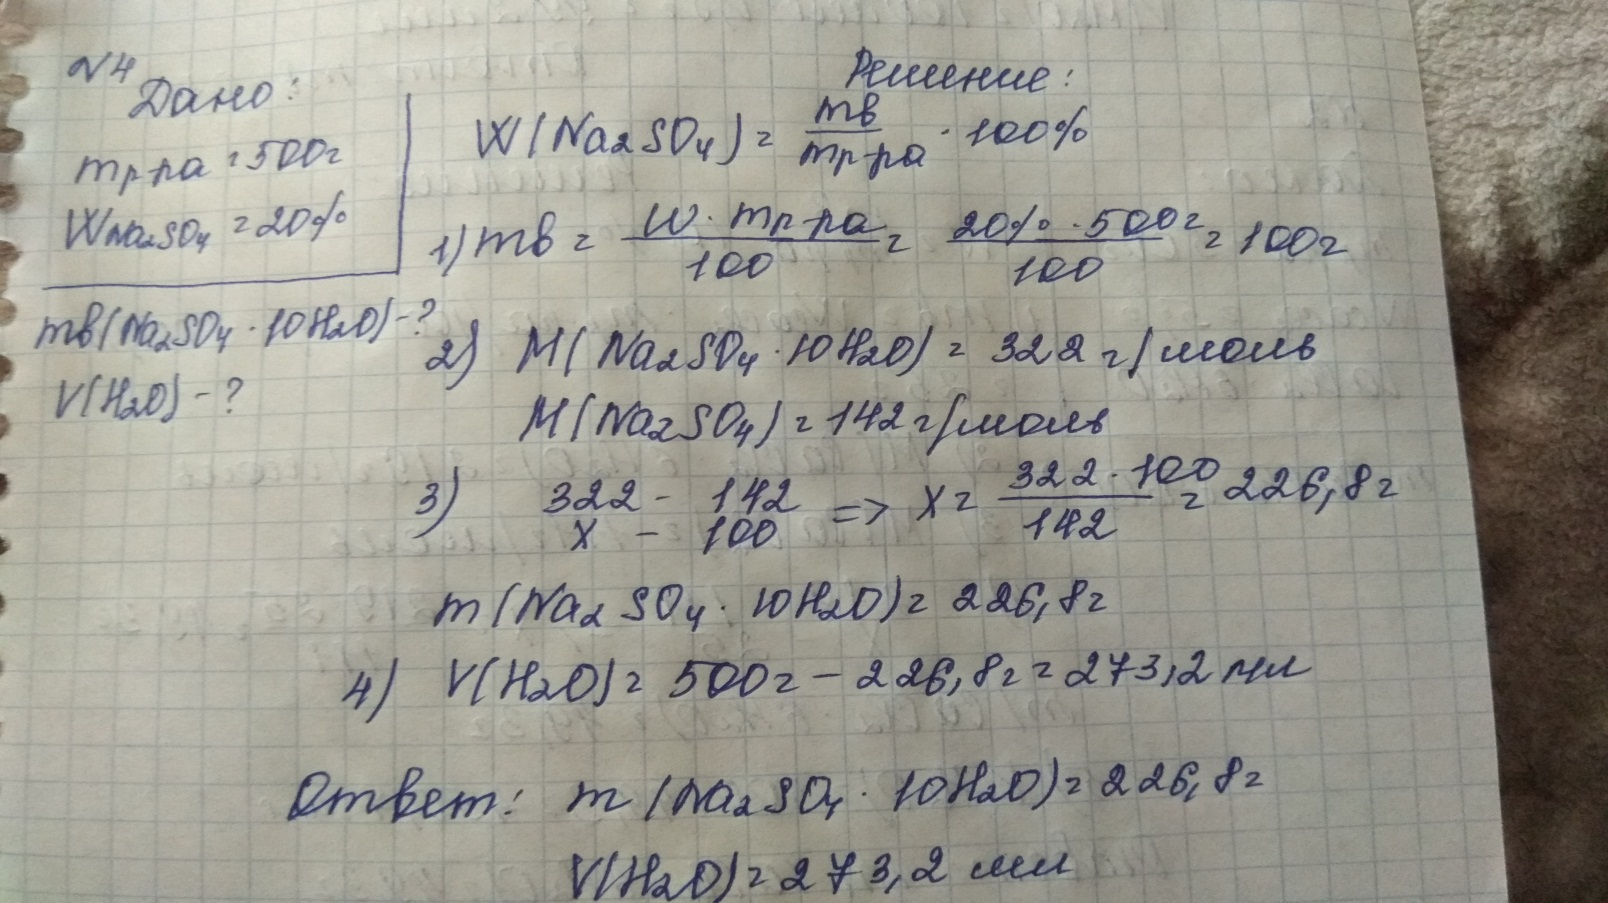 N4
Дано:
mр-ра = 500г
WNa₂SO₄ = 20%
mв(Na₂SO₄ · 10H₂O) - ?
V(H₂O) - ?
Решение:
W(Na₂SO₄) = mв/mр-ра · 100%
1) mв = W · mр-ра / 100 = 20% · 500г / 100 = 100г
2) M(Na₂SO₄ · 10H₂O) = 322 г/моль
M(Na₂SO₄) = 142 г/моль
3) 322 - 142
x - 100 => x = 322 · 100 / 142 = 226,8г
m(Na₂SO₄ · 10H₂O) = 226,8г
4) V(H₂O) = 500г - 226,8г = 273,2 мл
Ответ: m(Na₂SO₄ · 10H₂O) = 226,8г
V(H₂O) = 273,2 мл